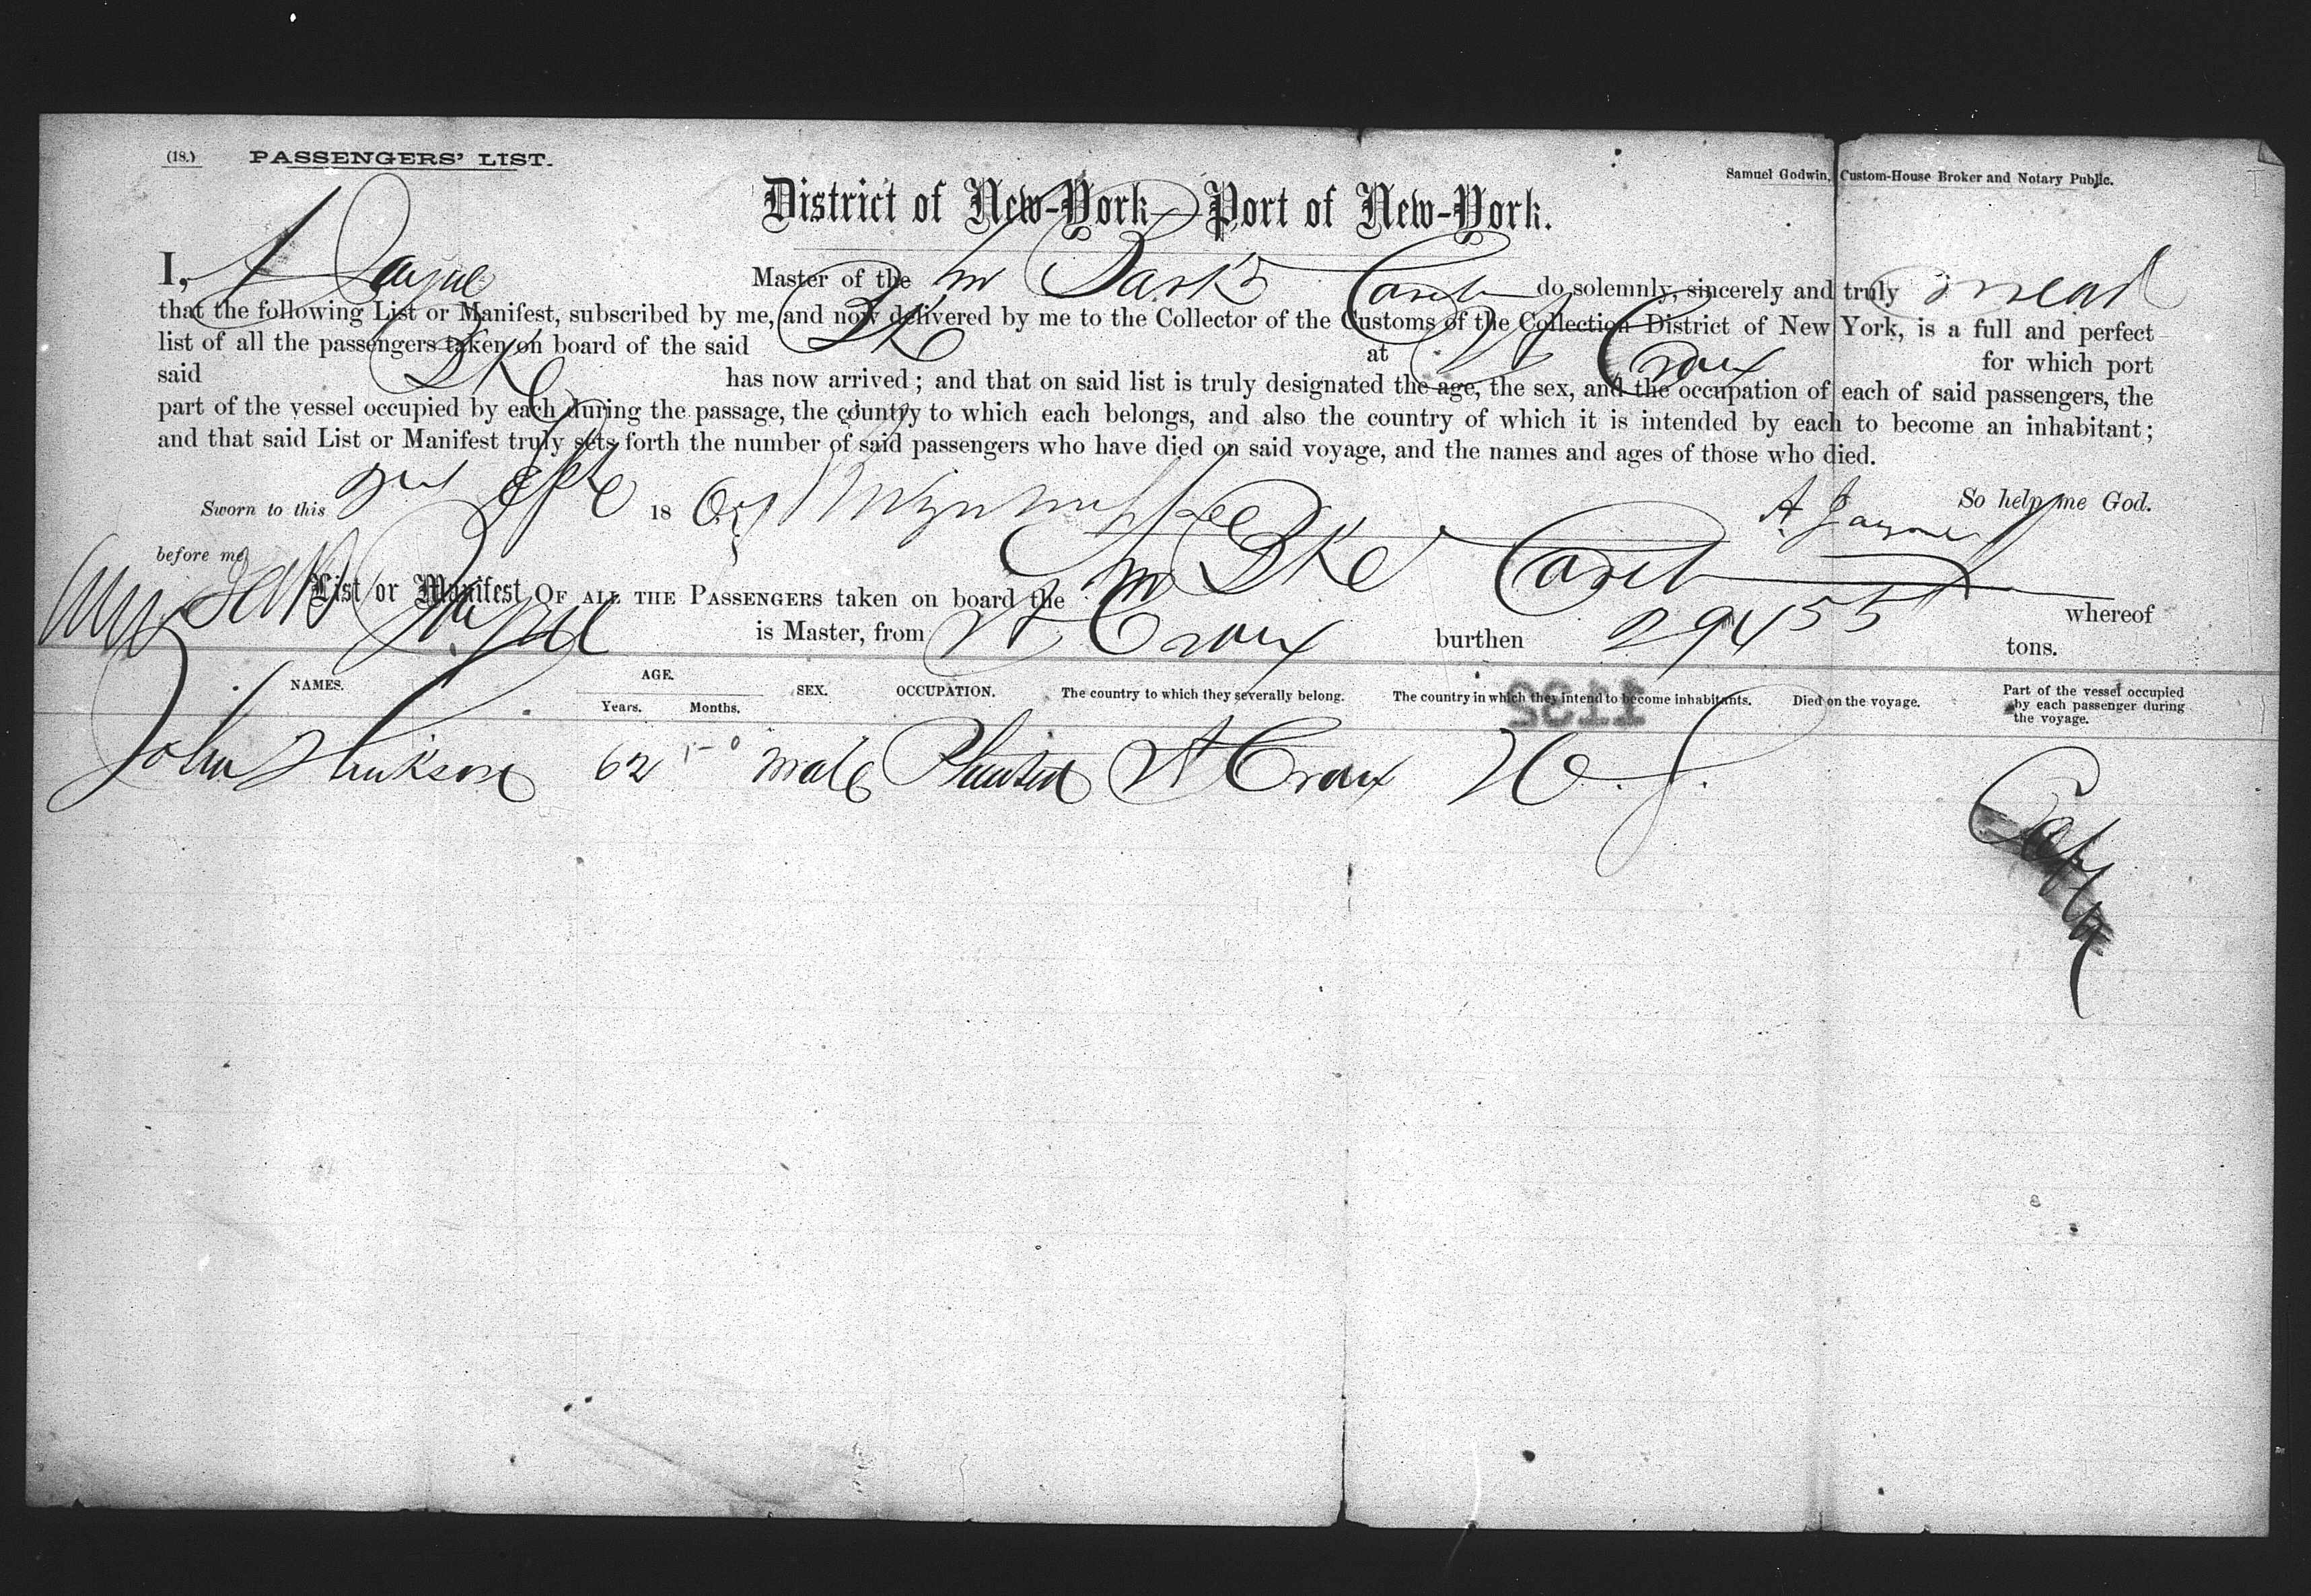 (18.) PASSENGERS' LIST.
Samuel Godwin, Custom-House Broker and Notary Public.
District of New-York—Port of New-York.
I, A Jayne Master of the Carib do solemnly, sincerely and truly swear
that the following List or Manifest, subscribed by me, and now delivered by me to the Collector of the Customs of the Collection District of New York, is a full and perfect
list of all the passengers taken on board of the said Bk at St Croix for which port
said Bk has now arrived; and that on said list is truly designated the age, the sex, and the occupation of each of said passengers, the
part of the vessel occupied by each during the passage, the country to which each belongs, and also the country of which it is intended by each to become an inhabitant;
and that said List or Manifest truly sets forth the number of said passengers who have died on said voyage, and the names and ages of those who died.
Sworn to this 18 So help me God.
A. Jayne
before me
List or Manifest OF ALL THE PASSENGERS taken on board the Carib whereof
Jayne is Master, from St Croix burthen 294 55 tons.
NAMES. AGE. Years. Months. SEX. OCCUPATION. The country to which they severally belong. The country in which they intend to become inhabitants. Died on the voyage. Part of the vessel occupied by each passenger during the voyage.
1132
John 62 male St Croix